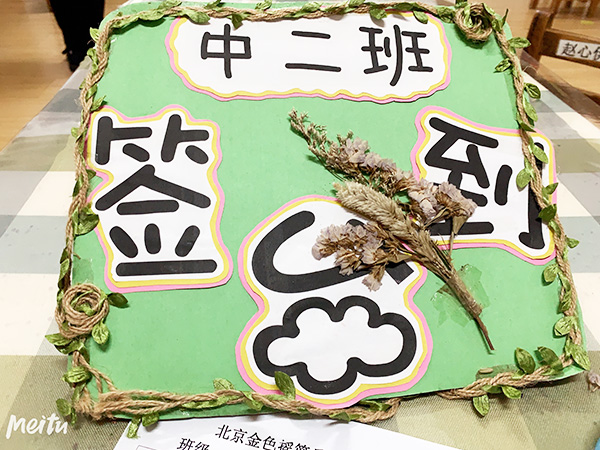 中二班
签到
台
赵心
北京金色摇篮
班级
Meitu